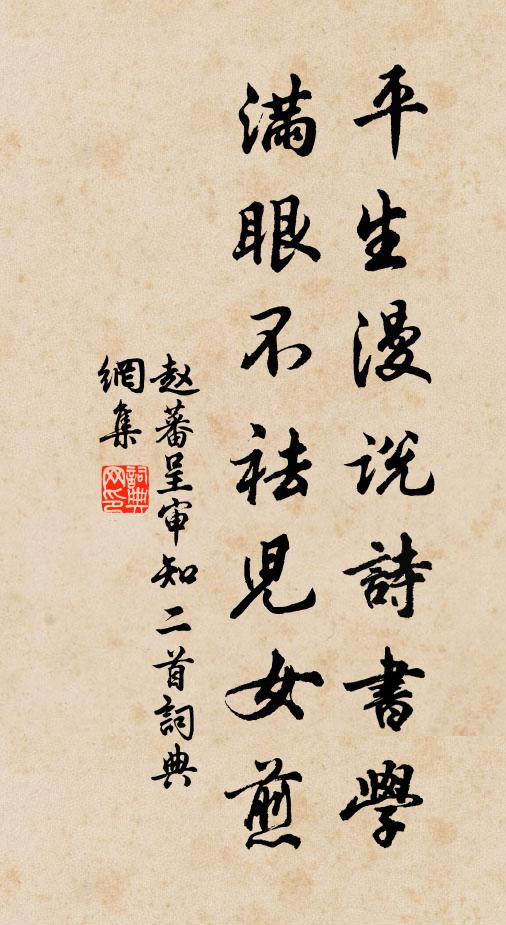 平生漫说詩書學
滿眼不祛兒女煎
赵蕃呈审知二首詞典
網集
詞典
网印